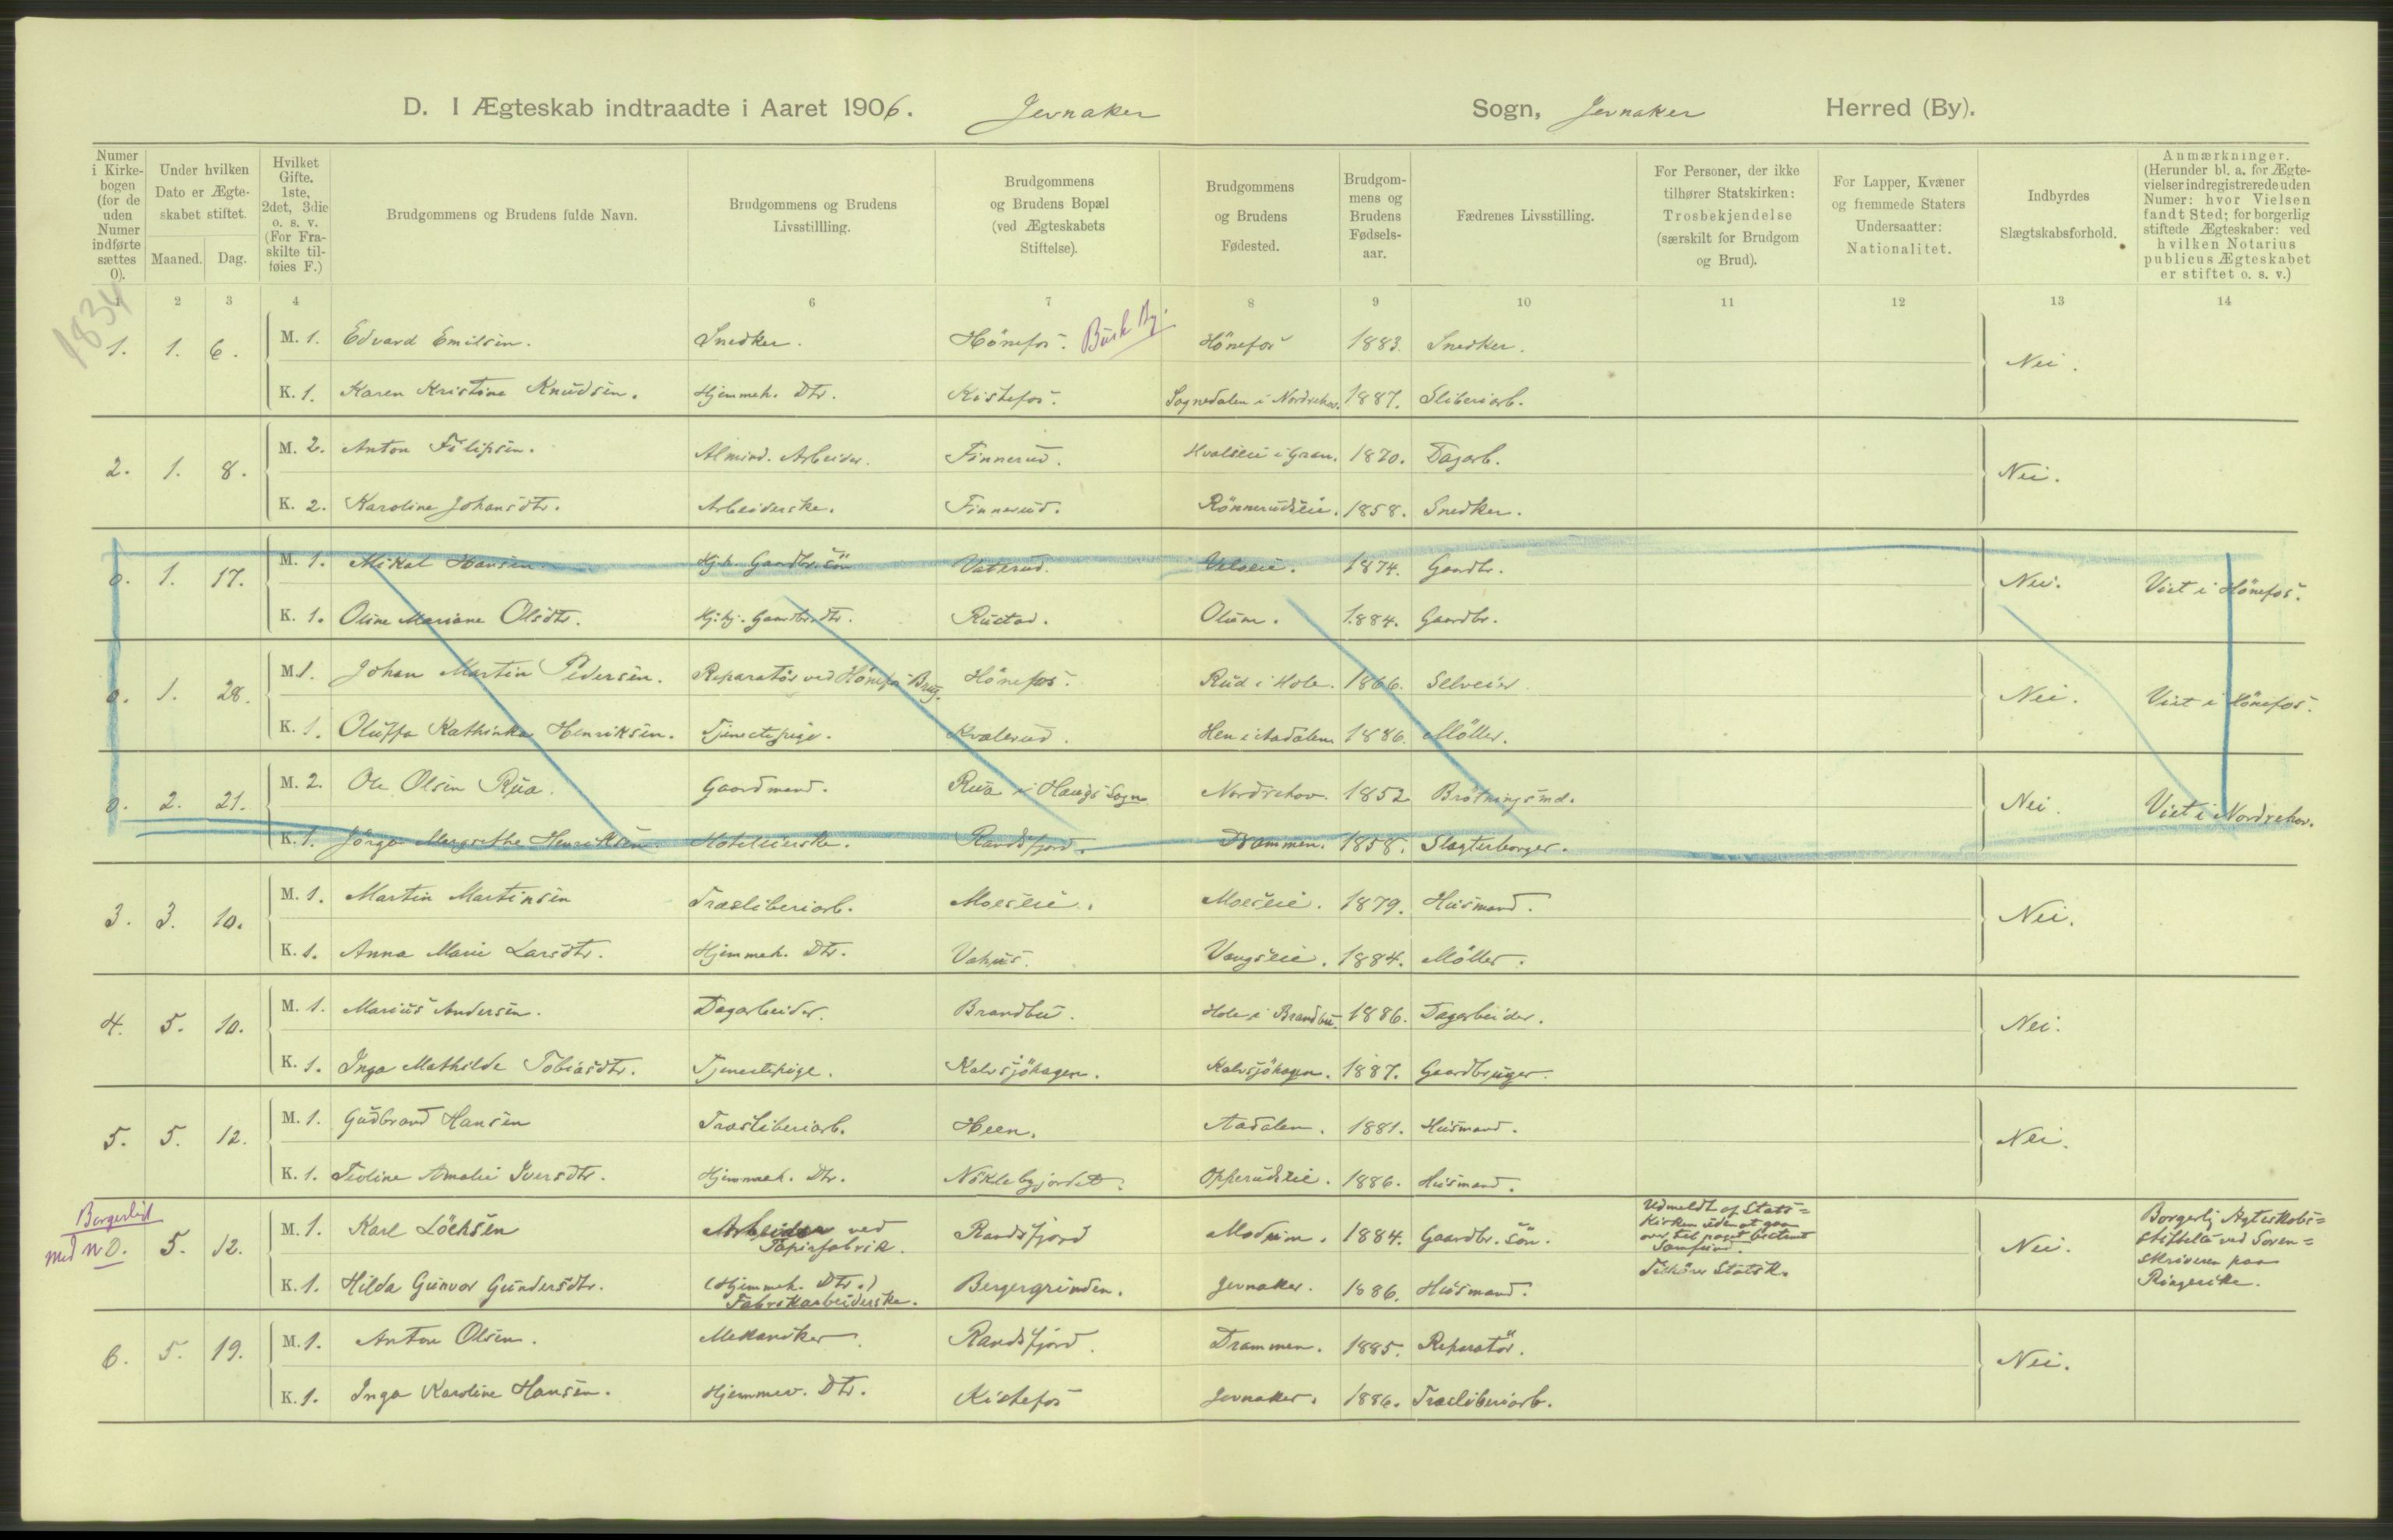 D. I Ægteskab indtraadte i Aaret 1906. Jevnaker Sogn, Jevnaker Herred (By).
Numer i Kirkebogen (for de uden Numer indførte sættes 0).
Under hvilken Dato er Ægteskabet stiftet.
Maaned. Dag.
Hvilket Gifte. 1ste, 2det, 3die o. s. v. (For Fraskilte tilføies F.)
Brudgommens og Brudens fulde Navn.
Brudgommens og Brudens Livsstillling.
Brudgommens og Brudens Bopæl (ved Ægteskabets Stiftelse).
Brudgommens og Brudens Fødested.
Brudgommens og Brudens Fødselsaar.
Fædrenes Livsstilling.
For Personer, der ikke tilhører Statskirken: Trosbekjendelse (særskilt for Brudgom og Brud).
For Lapper, Kvæner og fremmede Staters Undersaatter: Nationalitet.
Indbyrdes Slægtskabsforhold.
Anmærkninger. (Herunder bl. a. for Ægtevielser indregistrerede uden Numer: hvor Vielsen fandt Sted; for borgerlig stiftede Ægteskaber: ved hvilken Notarius publicus Ægteskabet er stiftet o. s. v.)
1 2 3 4 6 7 8 9 10 11 12 13 14
1834
1. 1. 6. M. 1. Edvard Emilsen. Snedker. Hönefos. Busk By. Hönefos 1883. Snedker. Nei.
K. 1. Karen Kristine Knudsen. Hjemmeh. Dtr. Kistefos. Sognedalen i Nordrehov. 1887. Sliberiarb.
2. 1. 8. M. 2. Anton Filipsen. Almind. Arbeider. Finnerud. Hvalseie i Gran. 1870. Dagarb. Nei.
K. 2. Karoline Johansdtr. Arbeiderske. Finnerud. Rönnerudseie. 1858. Snedker.
0. 1. 17. M. 1. Mikal Hansen Hjh. Gaardbr. sön Vaterud. Velseie. 1874. Gaardbr. Nei. Viet i Hönefos.
K. 1. Oline Mariane Olsdtr. Hj.hj. Gaardbr. dtr. Rustad. Olum. 1884. Gaardbr.
0. 1. 28. M. 1. Johan Martin Pedersen. Reparatör ved Hönefos Brug. Hönefos. Rud i Hole. 1866. Selveier. Nei. Viet i Hönefos.
K. 1. Oluffa Kathinka Henriksen. Tjenestepige. Kvalerud. Hen i Aadalen 1886. Möller.
0. 2. 21. M. 2. Ole Olsen Rua. Gaardmand. Rua i Haugs Sogn Nordrehov. 1852 Brötningsmd. Nei. Viet i Nordrehov.
K. 1. Jörga Margrethe Henriksen. Hoteleierske. Randsfjord. Drammen. 1858. Slagterborger.
3. 3. 10. M. 1. Martin Martinsen Træsliberiarb. Moeseie. Moeseie. 1879. Husmand. Nei.
K. 1. Anna Marie Larsdtr. Hjemmeh. Dtr. Vahus. Vangseie. 1884. Möller.
4. 5. 10. M. 1. Marius Andersen. Dagarbeider. Brandbu. Hole i Brandbu. 1886. Dagarbeider. Nei.
K. 1. Inga Mathilde Tobiasdtr. Tjenestepige. Kalvsjöhagen. Kalvsjöhagen. 1887. Gaardbruger.
5. 5. 12. M. 1. Gudbrand Hansen Træsliberiarb. Heen. Aadalen. 1881. Husmand. Nei.
K. 1. Teoline Amalie Iversdtr. Hjemmeh. Dtr. Nöklebyjordet. Opperudseie. 1886. Husmand.
Borgerligt
med N 0. 5. 12. M. 1. Karl Löchsen Arbeider ved Papirfabrik. Randsfjord Modum. 1884. Gaardbr. sön. Udmeldt af Stats=
Kirken uden at gaa
over til noget bestemt
Samfund. Nei. Borgerlig Ægteskabs=
stiftelse ved Soren=
skriveren paa
Ringerike.
K. 1. Hilda Gunvor Gundersdtr. (Hjemmeh. Dtr.) Fabrikarbeiderske. Bergergrunden. Jevnaker. 1886. Husmand. Tilhörer Statsk.
6. 5. 19. M. 1. Anton Olsen. Mekaniker. Randsfjord. Drammen. 1885. Reparatör. Nei.
K. 1. Inga Karoline Hansen. Hjemmev. Dtr. Kistefos Jevnaker. 1886. Træsliberiarb.